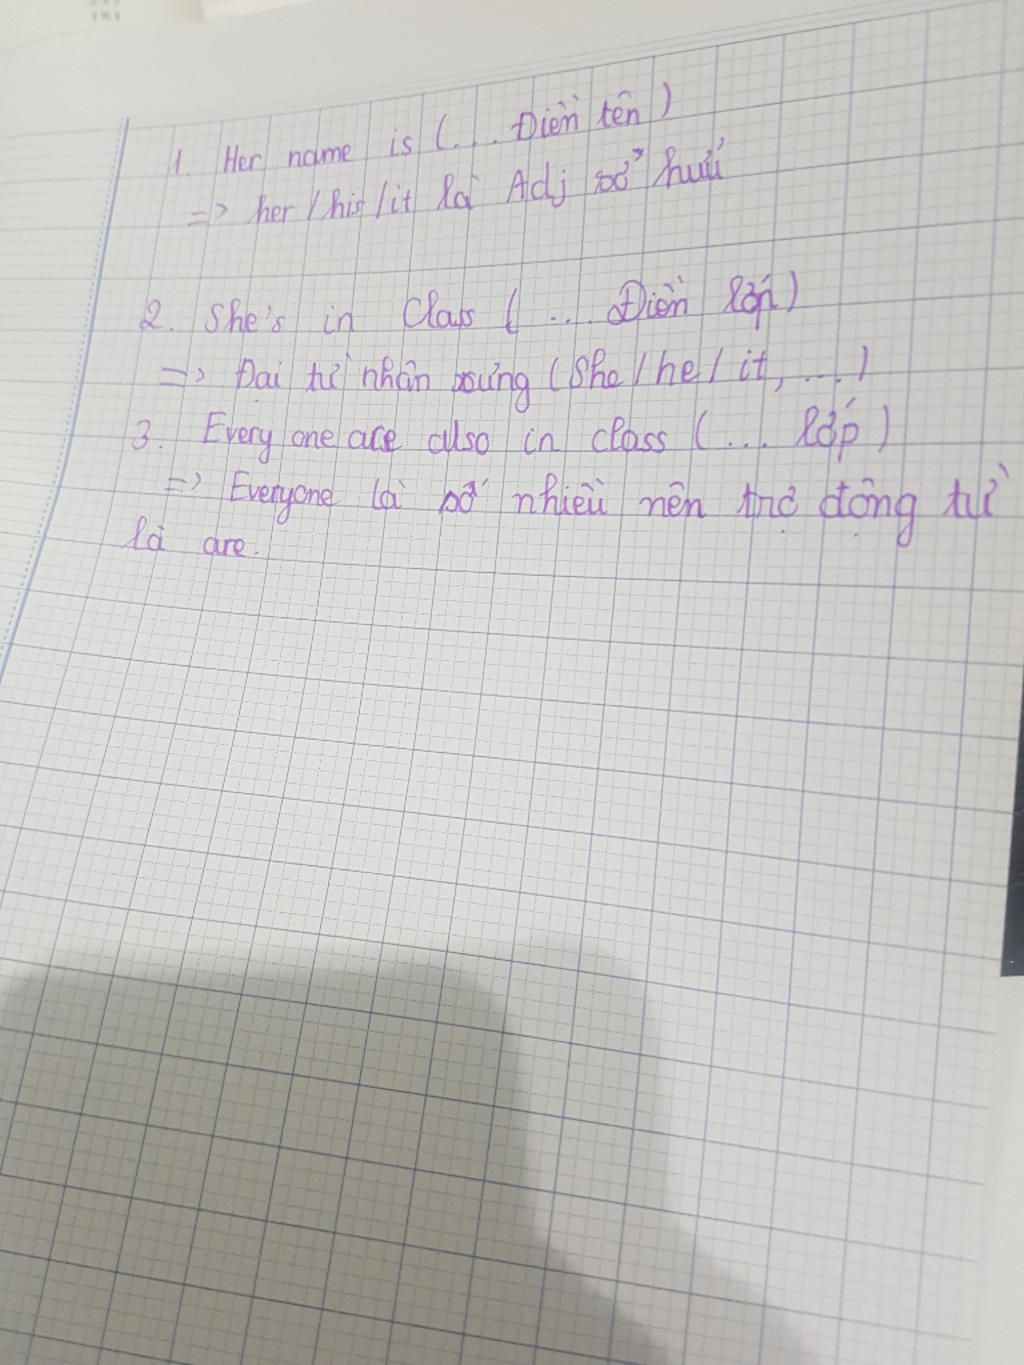 1. Her name is (... Điền tên)
=> her / his / it là Adj sở hữu
2. She's in Class (... Điền lớp)
=> Đại từ nhân xưng (She / he / it, ...)
3. Every one are also in class (... lớp)
=> Everyone là số nhiều nên trợ động từ
là are.